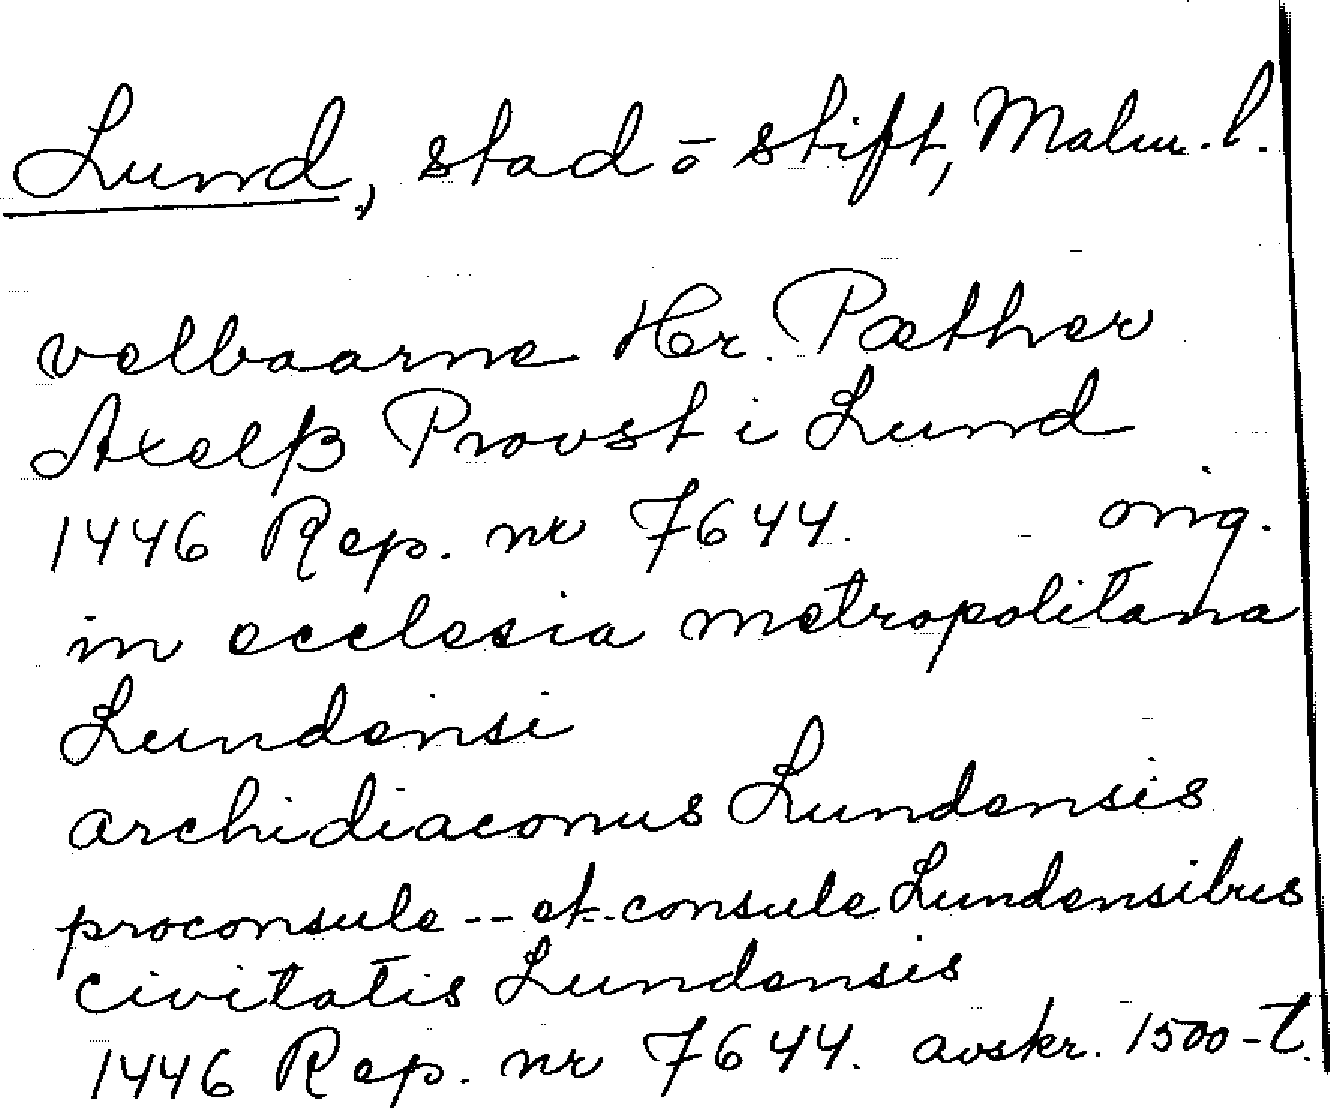 Lund, stad o stift, Malm. l.
velbaarne Hr. Pæther
Axelß Provst i Lund
1446 Rep. nr 7644. orig.
in ecclesia metropolitana
Lundensi
archidiaconus Lundensis
proconsule -- et consule Lundensibus
civitatis Lundensis
1446 Rep. nr 7644. avskr. 1500-t.